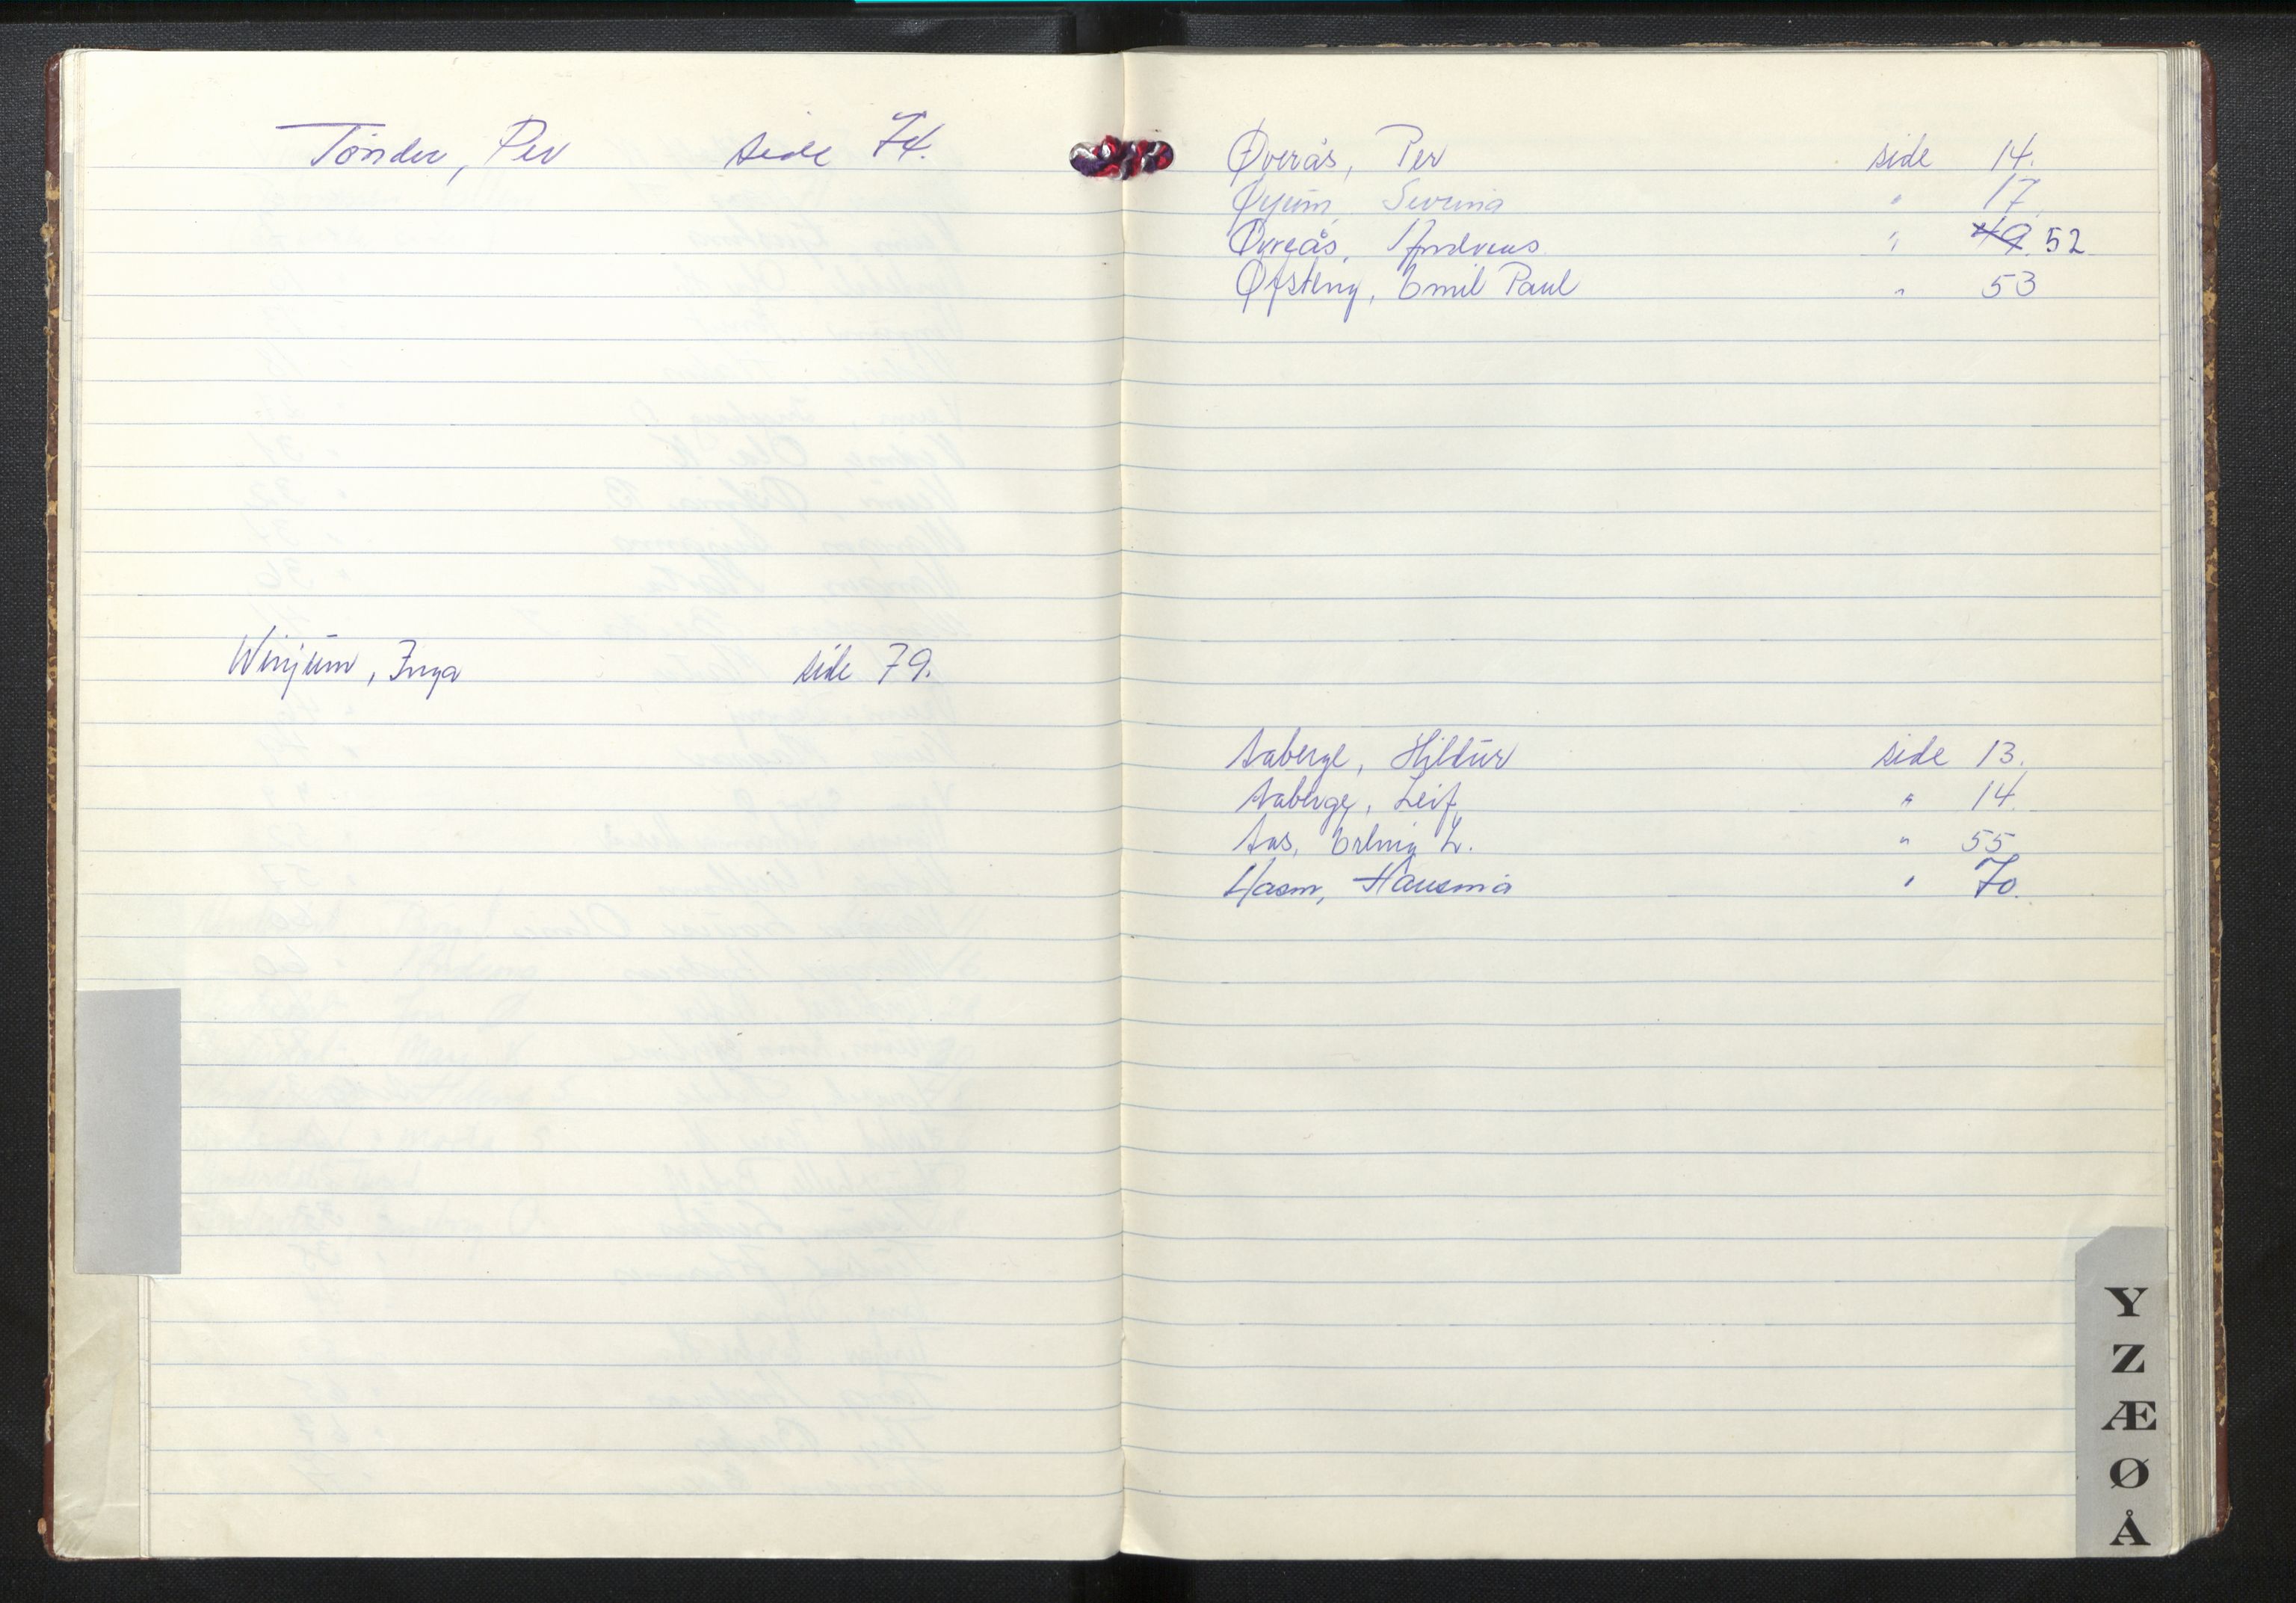 Tønder, Per side 74.
Winjum, Inga side 79.
Øverås, Per side 14.
Øyum, Severina " 17.
Øvreås, Andreas " 49. 52
Øfsteng, Emil Paul " 53
Aaberge, Hildur side 13.
Aaberge, Leif " 14.
Aas, Erling L. " 55
" 70.
Y
Z
Æ
Ø
Å